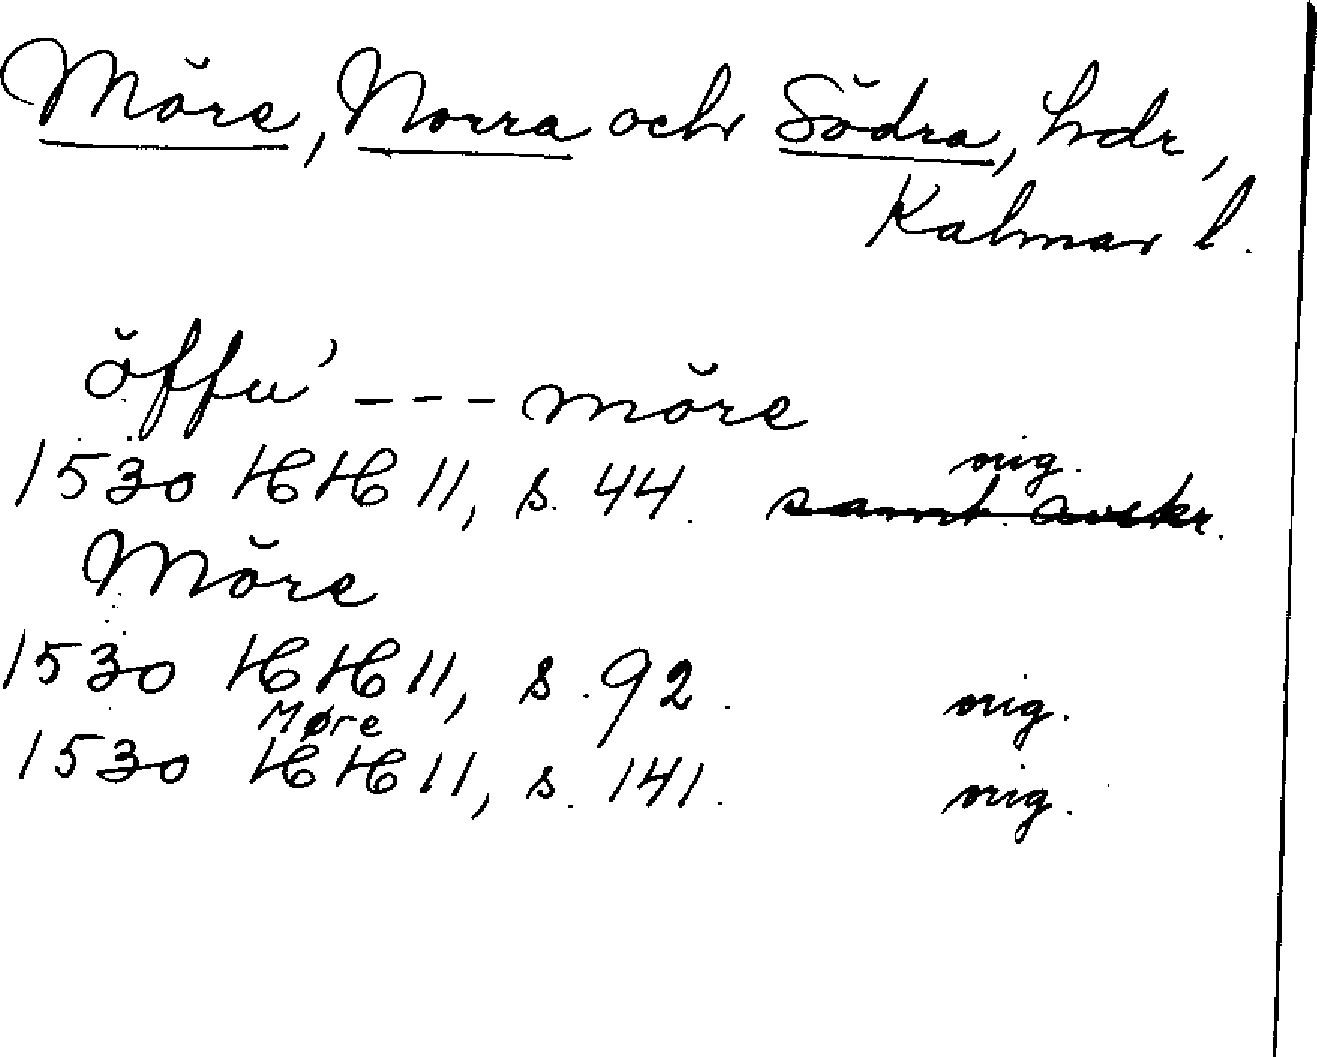 Möre, Norra och Södra, hdr,
Kalmar l.
öffu' --- möre
orig.
1530 HH 11, s. 44. samt. avskr.
Möre
1530 HH 11, s. 92. orig.
Møre
1530 HH 11, s. 141. orig.